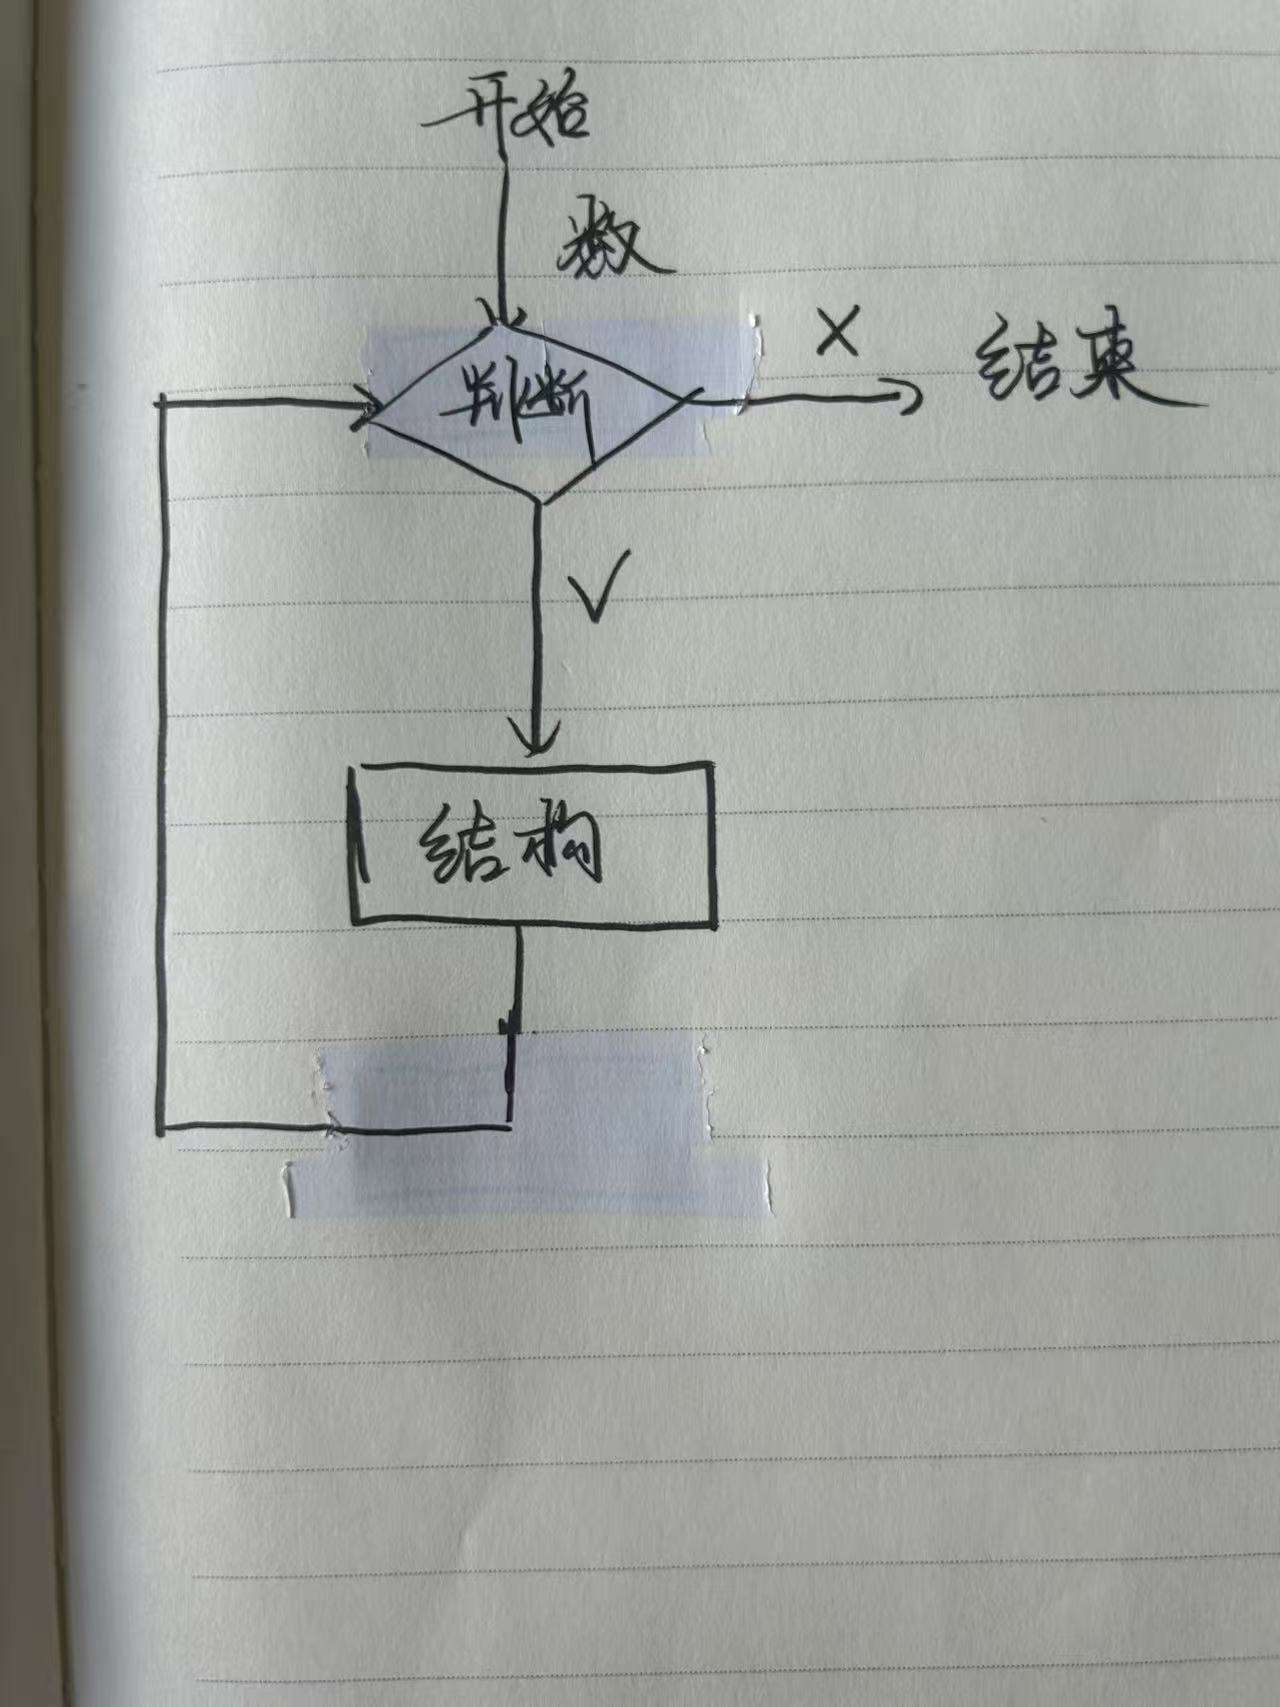 开始
数
判断
X
结束
✓
结构